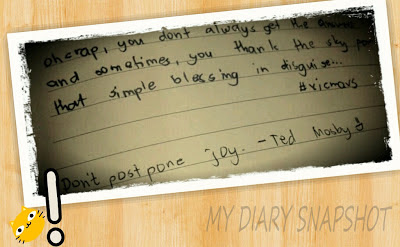 oh crap, you dont always get the
and sometimes, you thank the sky
that simple blessing in disguise...
#vicmavs
Don't postpone joy. - Ted Mosby
MY DIARY SNAPSHOT